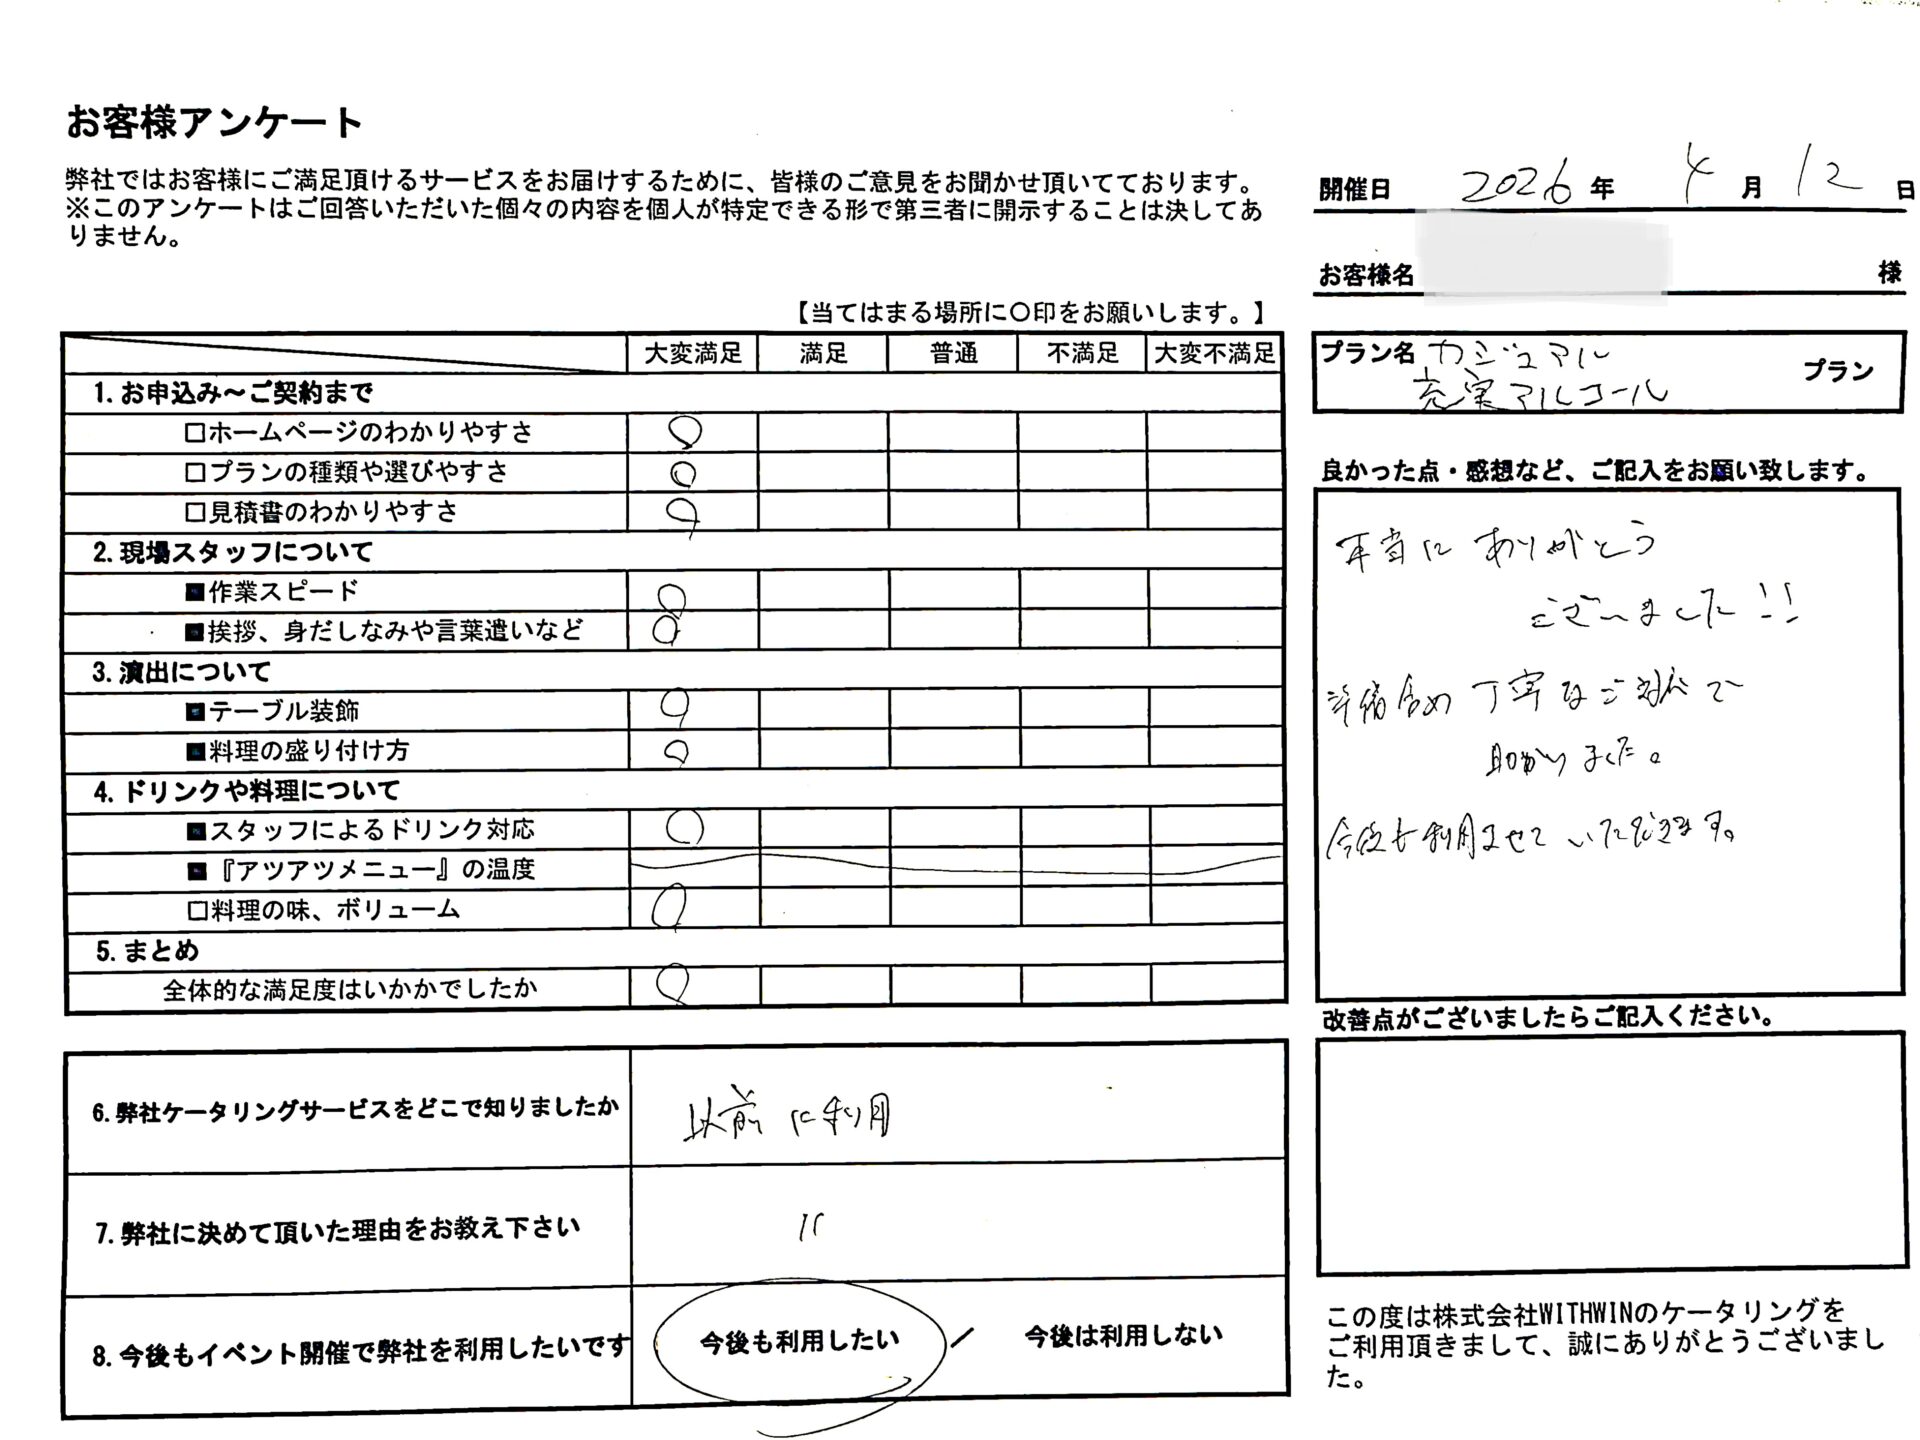 お客様アンケート
弊社ではお客様にご満足頂けるサービスをお届けするために、皆様のご意見をお聞かせ頂いてております。
※このアンケートはご回答いただいた個々の内容を個人が特定できる形で第三者に開示することは決してあ
りません。
開催日 2026 年 4 月 12 日
お客様名 様
【当てはまる場所に〇印をお願いします。】
大変満足 満足 普通 不満足 大変不満足
1. お申込み～ご契約まで
□ホームページのわかりやすさ ○
□プランの種類や選びやすさ ○
□見積書のわかりやすさ ○
2. 現場スタッフについて
■作業スピード ○
■挨拶、身だしなみや言葉遣いなど ○
3. 演出について
■テーブル装飾 ○
■料理の盛り付け方 ○
4. ドリンクや料理について
■スタッフによるドリンク対応 ○
■『アツアツメニュー』の温度
□料理の味、ボリューム ○
5. まとめ
全体的な満足度はいかかでしたか ○
6. 弊社ケータリングサービスをどこで知りましたか 以前に利用
7. 弊社に決めて頂いた理由をお教え下さい 〃
8. 今後もイベント開催で弊社を利用したいです 今後も利用したい ／ 今後は利用しない
プラン名 カジュアル
充実アルコール
プラン
良かった点・感想など、ご記入をお願い致します。
本当に ありがとう
ございました!!
準備含め 丁寧なご対応で
助かりました。
今後も利用させていただきます。
改善点がございましたらご記入ください。
この度は株式会社WITHWINのケータリングを
ご利用頂きまして、誠にありがとうございまし
た。